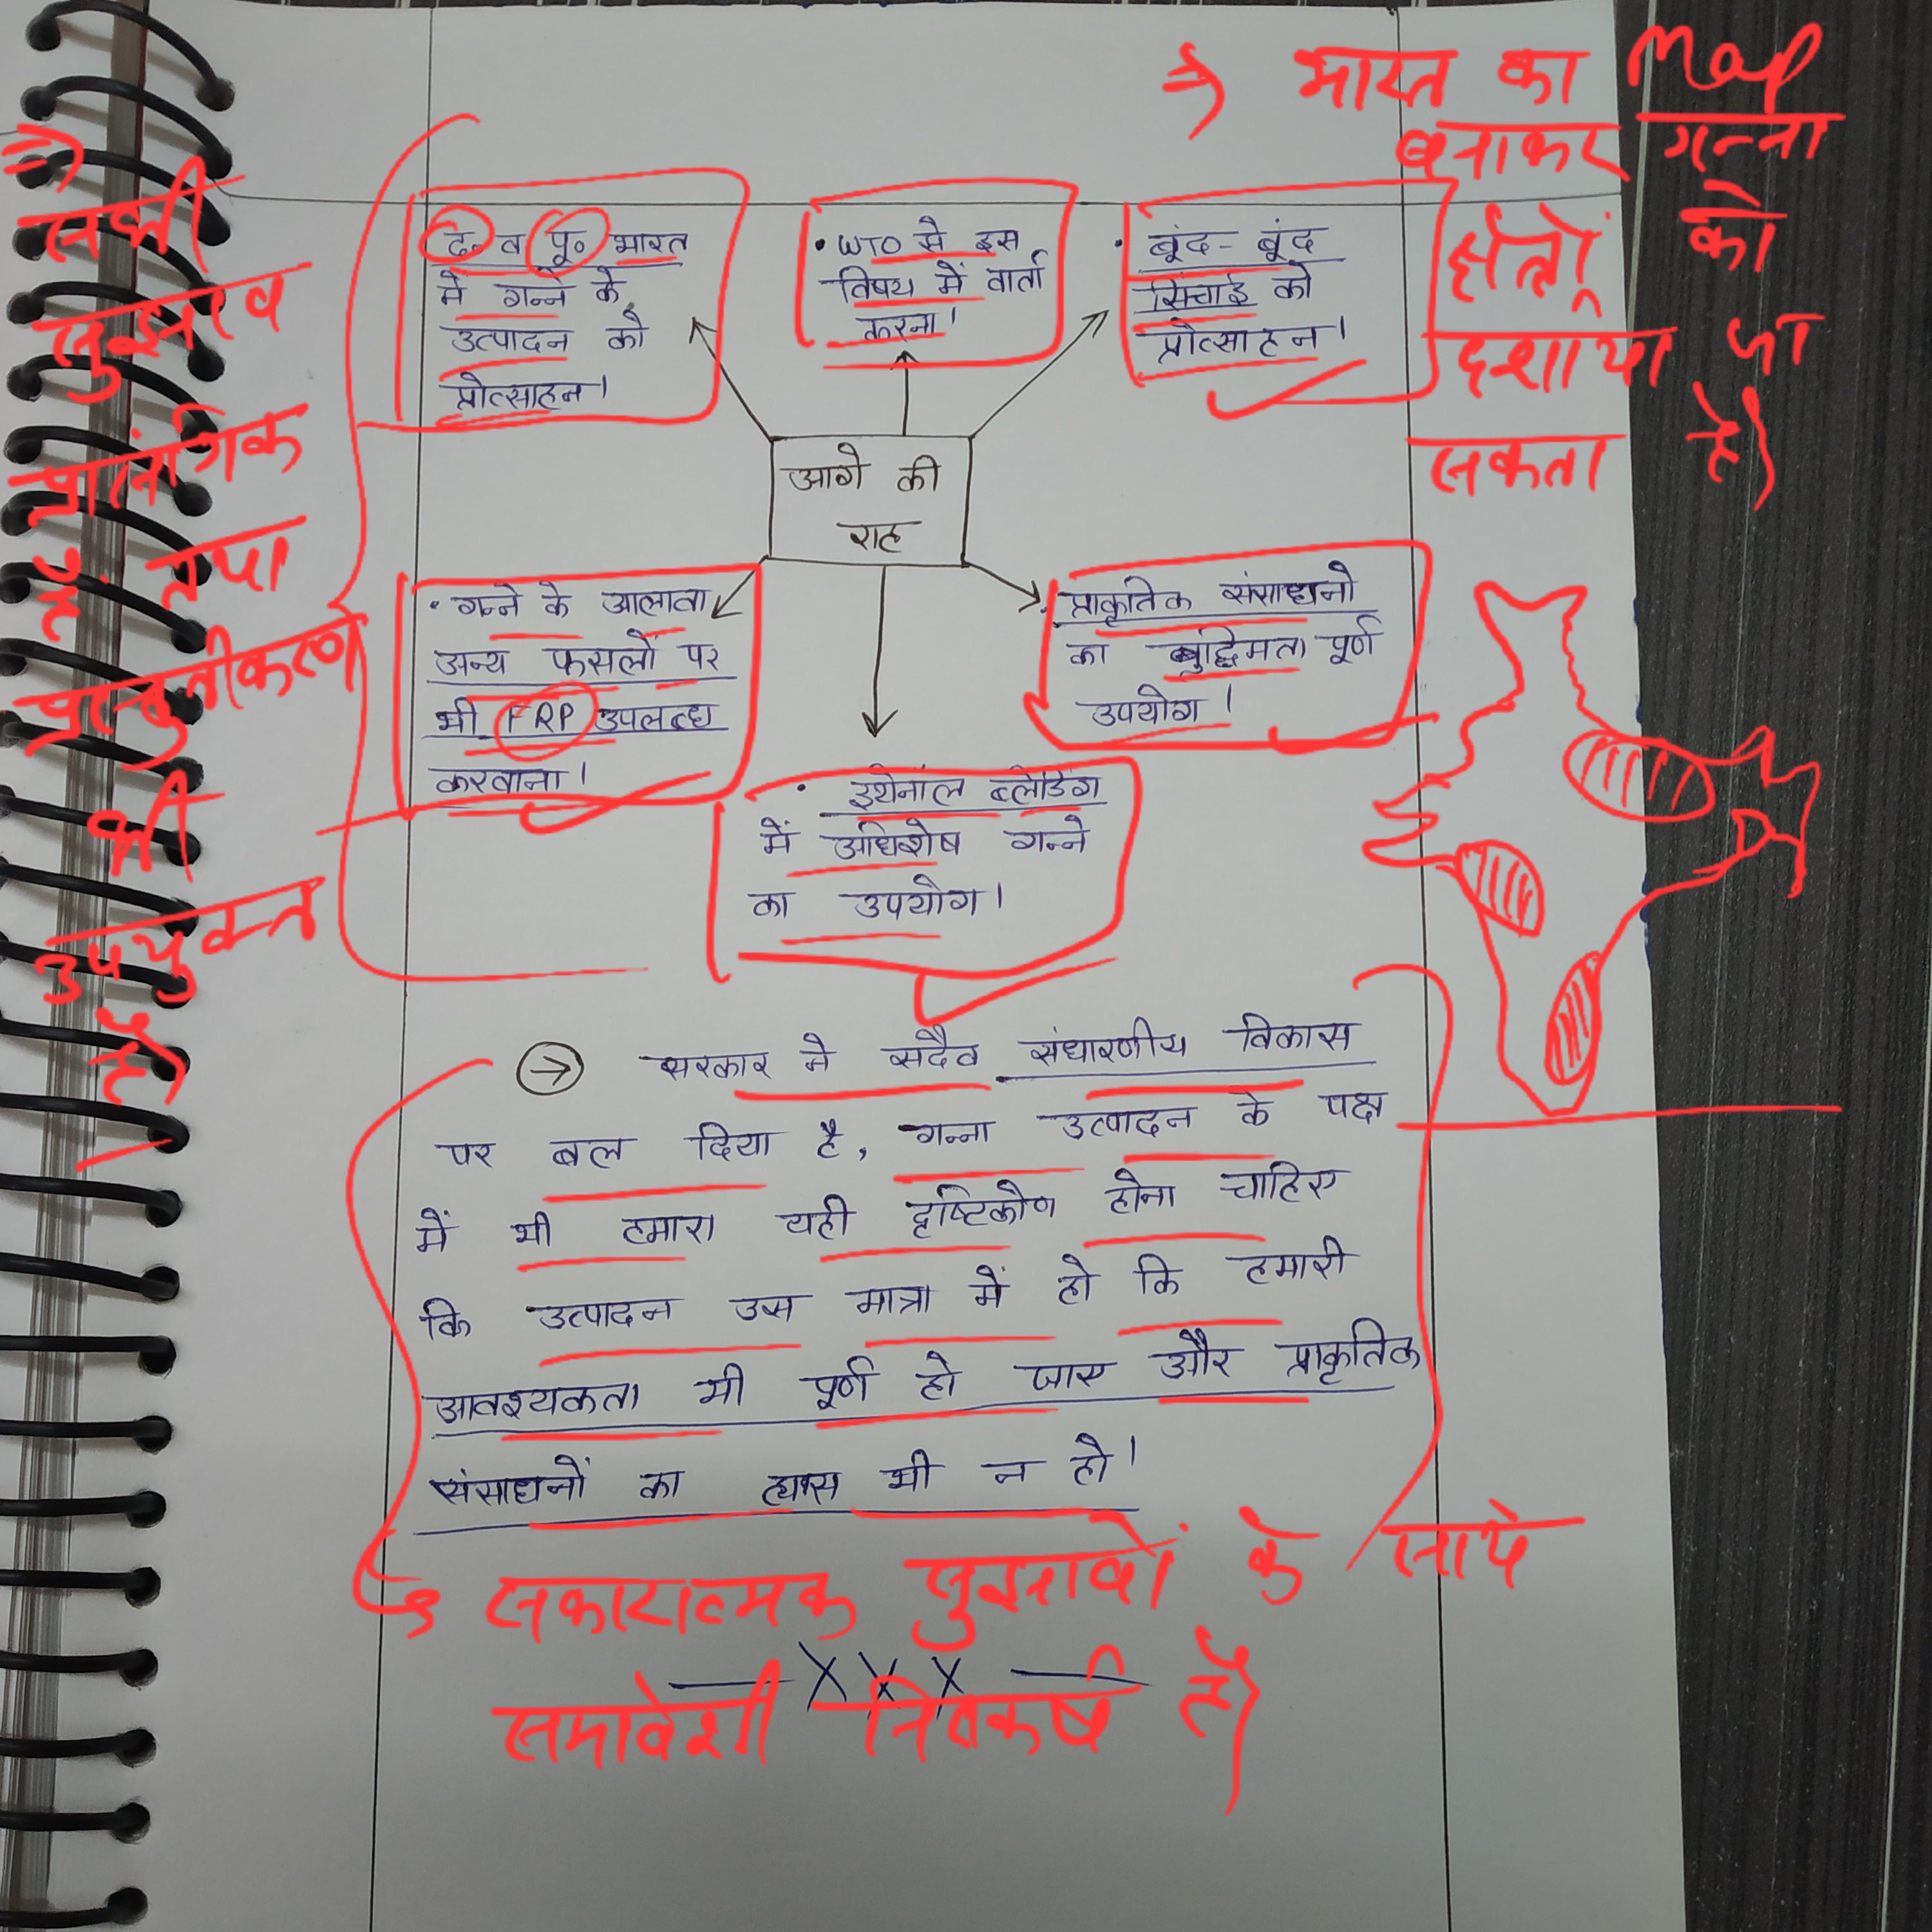 ⇒ भारत का Map
बनाकर गन्ना
क्षेत्रों को
दर्शाया जा
सकता है।
⇒ सभी
सुझाव
प्रासंगिक
हैं तथा
प्रस्तुतीकरण
भी
उपयुक्त
है।
द० व पू० भारत
में गन्ने के
उत्पादन को
प्रोत्साहन।
• WTO से इस
विषय में वार्ता
करना।
• बूंद-बूंद
सिंचाई को
प्रोत्साहन।
आगे की
राह
• गन्ने के आलावा
अन्य फसलों पर
भी FRP उपलब्ध
करवाना।
• प्राकृतिक संसाधनो
का बुद्धिमता पूर्ण
उपयोग।
• इथेनॉल ब्लेंडिंग
में अधिशेष गन्ने
का उपयोग।
→ सरकार ने सदैव संधारणीय विकास
पर बल दिया है, गन्ना उत्पादन के पक्ष
में भी हमारा यही दृष्टिकोण होना चाहिए
कि उत्पादन उस मात्रा में हो कि हमारी
आवश्यकता भी पूर्ण हो जाए और प्राकृतिक
संसाधनों का ह्यस भी न हो।
सकारात्मक सुझावों के साथ
— X X X —
समावेशी निष्कर्ष है।